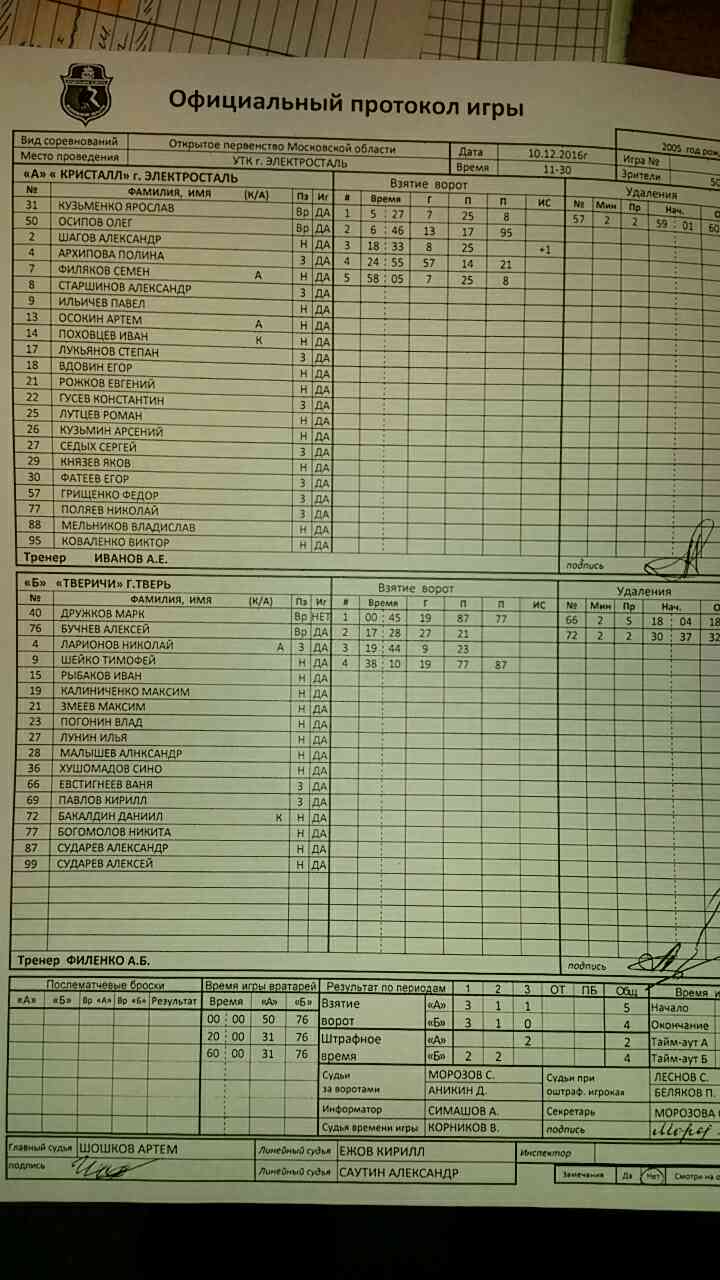 Официальный протокол игры
2005 год рож
Вид соревнований Открытое первенство Московской области Дата 10.12.2016г Игра №
Место проведения УТК г. ЭЛЕКТРОСТАЛЬ Время 11-30 Зрители 50
«А» « КРИСТАЛЛ» г. ЭЛЕКТРОСТАЛЬ Взятие ворот Удаления
№ ФАМИЛИЯ, ИМЯ (К/А) Пз Иг # Время Г П П ИС № Мин Пр Нач. О
31 КУЗЬМЕНКО ЯРОСЛАВ Вр ДА 1 5 : 27 7 25 8 57 2 2 59 : 01 60
50 ОСИПОВ ОЛЕГ Вр ДА 2 6 : 46 13 17 95
2 ШАГОВ АЛЕКСАНДР Н ДА 3 18 : 33 8 25 +1
4 АРХИПОВА ПОЛИНА З ДА 4 24 : 55 57 14 21
7 ФИЛЯКОВ СЕМЕН А Н ДА 5 58 : 05 7 25 8
8 СТАРШИНОВ АЛЕКСАНДР З ДА
9 ИЛЬИЧЕВ ПАВЕЛ Н ДА
13 ОСОКИН АРТЕМ А Н ДА
14 ПОХОВЦЕВ ИВАН К Н ДА
17 ЛУКЬЯНОВ СТЕПАН З ДА
18 ВДОВИН ЕГОР Н ДА
21 РОЖКОВ ЕВГЕНИЙ Н ДА
22 ГУСЕВ КОНСТАНТИН З ДА
25 ЛУТЦЕВ РОМАН Н ДА
26 КУЗЬМИН АРСЕНИЙ Н ДА
27 СЕДЫХ СЕРГЕЙ З ДА
29 КНЯЗЕВ ЯКОВ Н ДА
30 ФАТЕЕВ ЕГОР З ДА
57 ГРИЩЕНКО ФЕДОР З ДА
77 ПОЛЯЕВ НИКОЛАЙ З ДА
88 МЕЛЬНИКОВ ВЛАДИСЛАВ Н ДА
95 КОВАЛЕНКО ВИКТОР Н ДА
Тренер ИВАНОВ А.Е. подпись
«Б» «ТВЕРИЧИ» Г.ТВЕРЬ Взятие ворот Удаления
№ ФАМИЛИЯ, ИМЯ (К/А) Пз Иг # Время Г П П ИС № Мин Пр Нач. О
40 ДРУЖКОВ МАРК Вр НЕТ 1 00 : 45 19 87 77 66 2 5 18 : 04 18
76 БУЧНЕВ АЛЕКСЕЙ Вр ДА 2 17 : 28 27 21 72 2 2 30 : 37 32
4 ЛАРИОНОВ НИКОЛАЙ А З ДА 3 19 : 44 9 23
9 ШЕЙКО ТИМОФЕЙ Н ДА 4 38 : 10 19 77 87
15 РЫБАКОВ ИВАН Н ДА
19 КАЛИНИЧЕНКО МАКСИМ Н ДА
21 ЗМЕЕВ МАКСИМ Н ДА
23 ПОГОНИН ВЛАД Н ДА
27 ЛУНИН ИЛЬЯ Н ДА
28 МАЛЫШЕВ АЛНКСАНДР Н ДА
36 ХУШОМАДОВ СИНО Н ДА
66 ЕВСТИГНЕЕВ ВАНЯ З ДА
69 ПАВЛОВ КИРИЛЛ З ДА
72 БАКАЛДИН ДАНИИЛ К Н ДА
77 БОГОМОЛОВ НИКИТА Н ДА
87 СУДАРЕВ АЛЕКСАНДР Н ДА
99 СУДАРЕВ АЛЕКСЕЙ Н ДА
Тренер ФИЛЕНКО А.Б. подпись
Послематчевые броски Время игры вратарей Результат по периодам 1 2 3 ОТ ПБ Общ Время и
«А» «Б» Вр «А» Вр «Б» Результат Время «А» «Б» Взятие «А» 3 1 1 5 Начало
00 : 00 50 76 ворот «Б» 3 1 0 4 Окончание
20 : 00 31 76 Штрафное «А» 2 2 Тайм-аут А
60 : 00 31 76 время «Б» 2 2 4 Тайм-аут Б
Судьи МОРОЗОВ С. Судьи при ЛЕСНОВ С.
за воротами АНИКИН Д. оштраф. игроках БЕЛЯКОВ П.
Информатор СИМАШОВ А. Секретарь МОРОЗОВА
Судья времени игры КОРНИКОВ В. подпись
Главный судья ШОШКОВ АРТЕМ Линейный судья ЕЖОВ КИРИЛЛ Инспектор
подпись Линейный судья САУТИН АЛЕКСАНДР Замечания Да Нет Смотри на о